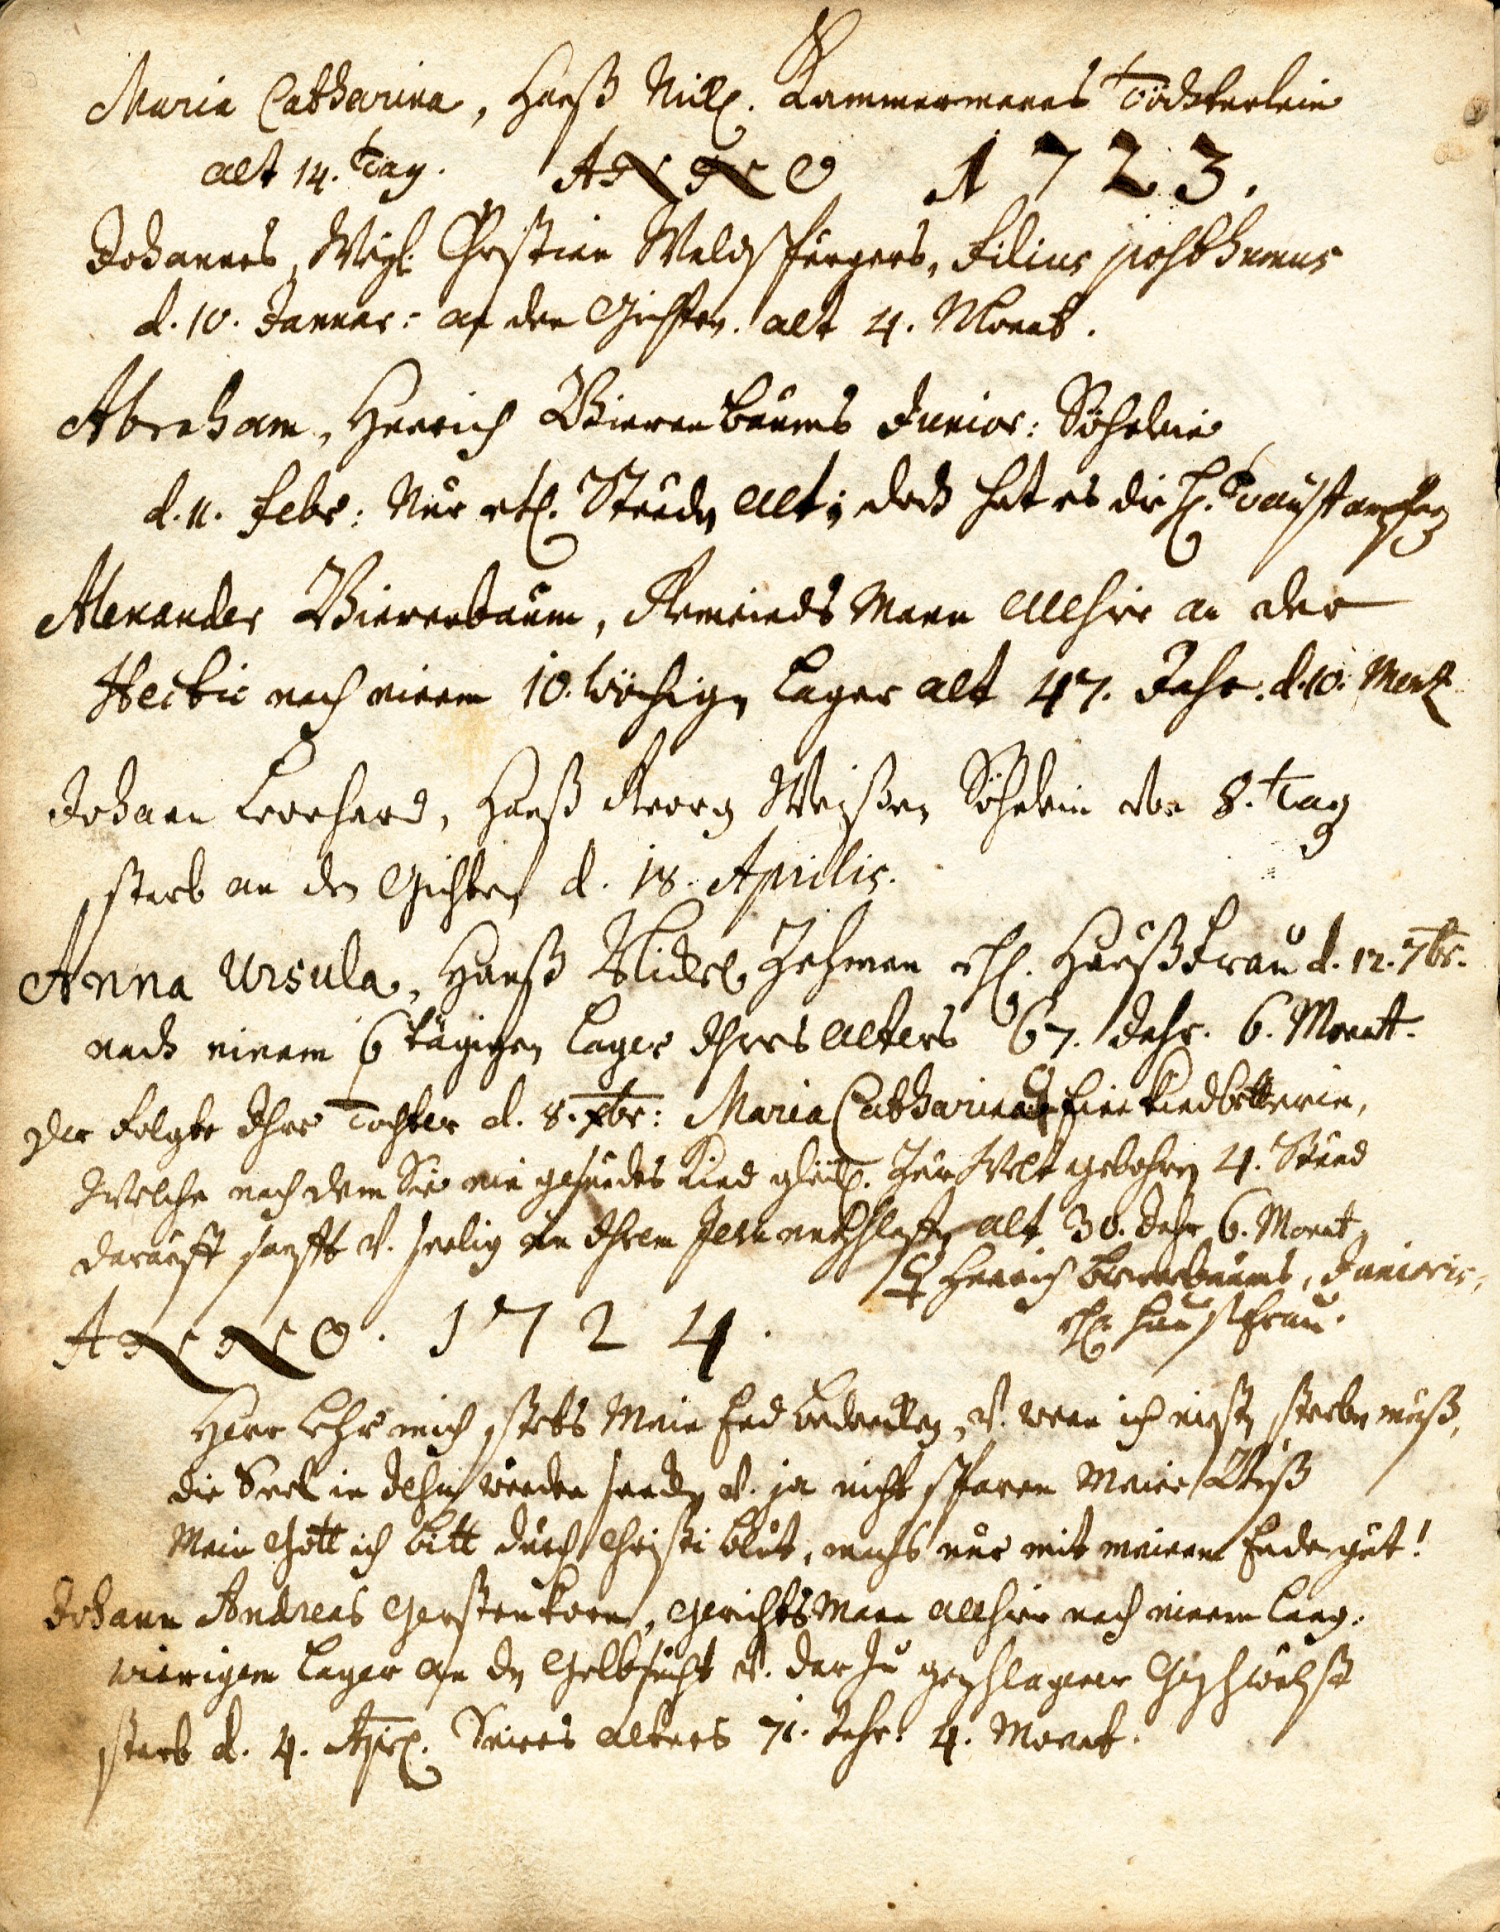 Maria Catharina, Hanß Nikl. Kammermanns Töchterlein
alt 14. Tag. ANNO 1723.
Johannes, Christian Filius posthumus
d. 10. Januar: an den Gichten. alt 4. Monat.
Abraham, Henrich Bierenbaums Junior: Söhnlein
d. 11. Febr: Nur etl. Stundn alt; doch hat es die H. Tauff empfang
Alexander Bierenbaum, Gemeinds Mann allhier an der
Hectic nach einem 10. wöchign Lager alt 47. Jahr. d. 10. Mertz
Johann Leonhard, Hanß Georg Weißen Söhnlein von 8. Tag
starb an den Gichten d. 18. Aprilis.
Anna Ursula, Hanß Zehmen ehl. Haußfrau d. 12. 7br.
nach einem 6 tägigen Lager Ihres alters 67. Jahr. 6. Monatt.
Der folgte Ihre Tochter d. 8. xbr: Maria Catharina Eine Kindbetterin,
Welche nach dem Sie ein gesundes Kind glückl. Zur Welt gebohren 4. Stund
darauff sanfft v. seelig in Ihrem Jesu entschlaffn alt 30. Jahr 6. Monat
Henrich Bierenbaums, Junioris,
ehl. Haußfrau.
ANNO. 1724.
Herr Lehr mich stets Mein End bedencken, v. wenn ich einstn sterben muß,
die Seel in Jesu wunden sencken v. ja nicht sparen Meine Buß
Mein Gott ich bitt durch Christi blut, machs nur mit meinem Ende gut!
Johann Andreas Gerstenkorn, Gerichts Mann allhier nach einem lang-
wierigem Lager an der Gelbsucht v. darzu geschlagener Geschwulst
starb d. 4. Apr. Seines alters 71. Jahr. 4. Monat.